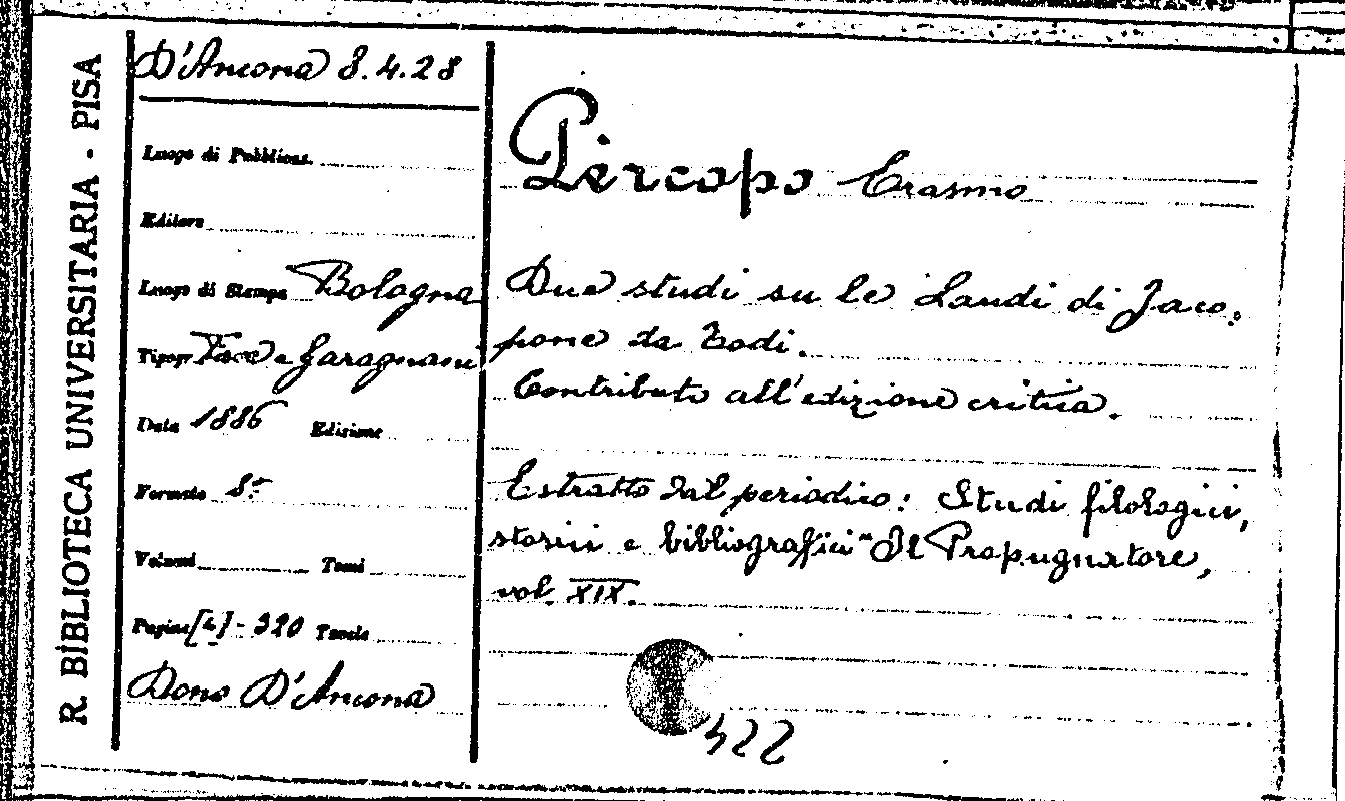 R. BIBLIOTECA UNIVERSITARIA - PISA
D'Ancona 8.4.28
Luogo di Pubblicaz.
Editore
Luogo di Stampa Bologna
Tipogr. Fava e Garagnani
Data 1886 Edizione
Formato 8º
Volumi Tomi
Pagine [4]-320 Tavole
Dono D'Ancona
Pèrcopo Erasmo
Due studi su le Laudi di Jaco:
pone da Todi.
Contributo all'edizione critica.
Estratto dal periodico: Studi filologici,
storici e bibliografici "Il Propugnatore,
vol. XIX.
422